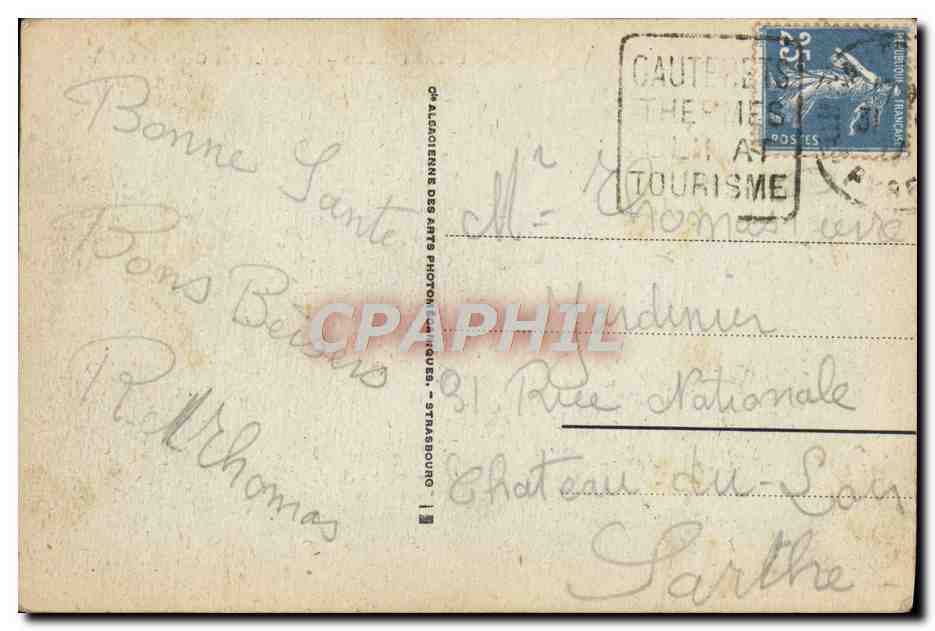 Bonne
Santé
Bons Baisers
R. Thomas
Cie ALSACIENNE DES ARTS PHOTOMÉCANIQUES. - STRASBOURG
CAUTERETS
THERMES
CLIMAT
TOURISME
25
RÉPUBLIQUE FRANÇAISE
POSTES
Mr Thomas
Jardinier
31, Rue Nationale
Chateau-du-Loir
Sarthe
CPAPHIL